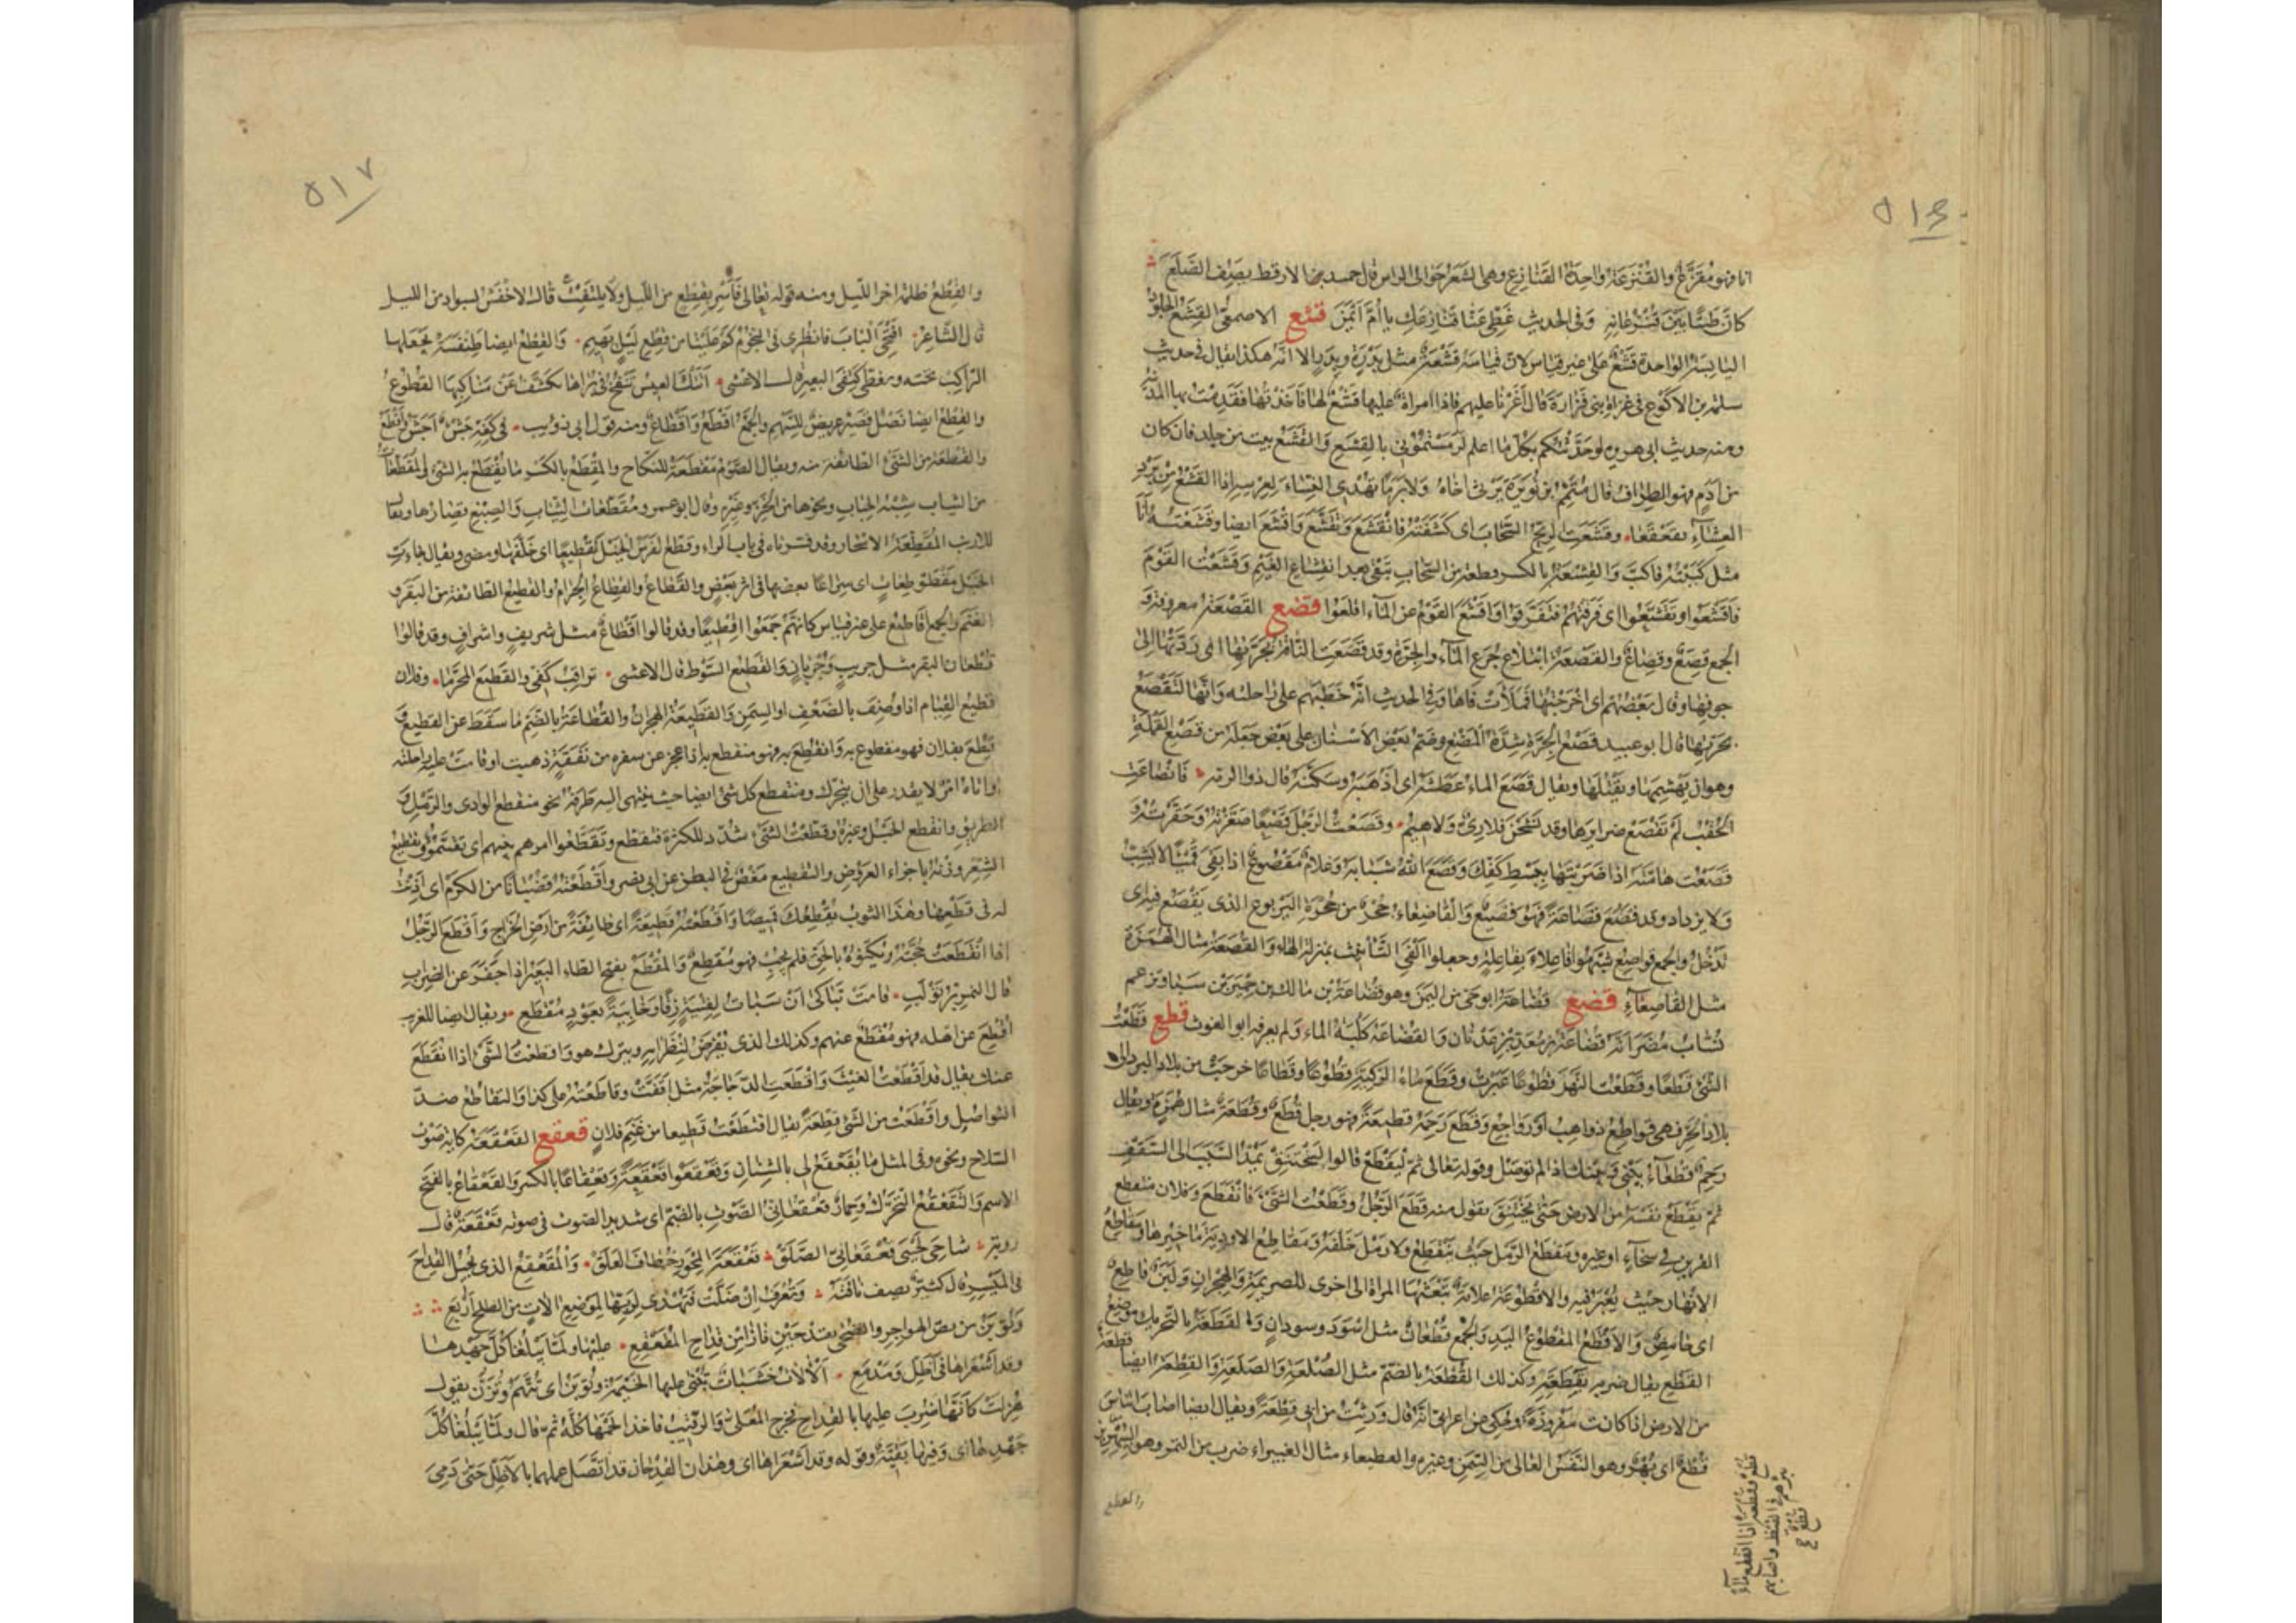 ٥١٦
انا فهو مُقَزَّعٌ والقُنْزُعَة واحدة القَنَازِع وهى الشعر حوالى الراس قال حميد الارقط يصف الصَّلَعَ
كانَّ طَسًّا بَيْنَ قُنْزُعَاتِهِ وفى الحديث غَطِّى عَنَّا قَنَازِعَكِ يا أُمَّ أَيْمَنَ قشع الاصمعى القَشْعُ الجلود
اليابسة الواحدة قَشْعٌ على غير قياس لان قياسه قَشْعَةٌ مثل بَدْرَة وبِدَرٍ الا انه هكذا يقال فى حديث
سلمة بن الاكوع فى غزاة بنى فزارة قال أَغَرْنا عليهم فاذا امراة عليها قَشْعٌ لها فاخذتها فقدمت بها المدينة
ومنه حديث ابى هريرة لو حَدَّثْتُكُم بكل ما اعلم لَرَمَيْتُمُونِى بالقِشَع والقَشْعُ بيت من جلد فان كان
من أَدَمٍ فهو الطِراف قال مُتَمِّمُ بن نُوَيْرَة يرثى اخاه ولا بَرَمًا تُهْدِى النساءُ لِعِرسه اذا القَشْعُ مِن بَرْدِ
الشتاء تَقَعْقَعَا وقَشَعَتِ الريحُ السَّحَابَ اى كَشَفَتْهُ فانْقَشَعَ وتَقَشَّعَ وأَقْشَعَ ايضا وقَشَعْتُه أنا
مثل كَبَبْتُهُ فأكبَّ والقِشْعَةُ بالكسر قطعة من السحاب تبقى بعد انقشاع الغَيْمِ وقَشَعْتُ القومَ
فأقشعوا وتقشّعوا اى فرقتهم فتفرقوا وأقشع القوم عن الماء اقلعوا قصع القَصْعَةُ معروفة و
الجمع قِصَعٌ وقِصَاعٌ والقَصْعُ ابتلاع جُرَعِ الماء والجِرّة وقد قَصَعَتِ الناقة بجرّتها اى ردّتها الى
جوفها وقال بعضهم اى اخرجتها فملأت فاها وفى الحديث انه خطبهم على راحلته وانها لتقصع
بجرّتها قال ابو عبيد قَصْعُ الجِرّة شدة المضغ وضم بعض الاسنان على بعض جعله من قصع القملة
وهو ان يَهْشِمَها ويَقْتُلَها ويقال قصع الماءُ عطشَه اى اذهبه وسكّنه قال ذو الرمة فانصاعت
الحُقْبُ لم تَقْصَعْ ضرايرها وقد نَشَحْنَ فلا رِىٌّ ولا هِيمُ وقَصَعْتُ الرجل قَصْعًا صَغَّرْتُهُ وحَقَّرْتُهُ و
قَصَعْتُ هامَتَه اذا ضربتها ببسط كفّك وقَصَعَ الله شبابَه وغلام مَقْصُوعٌ اذا بقى قَمِيئًا لا يشبّ
ولا يزداد وقد قَصُعَ قَصَاعَةً فهو قَصِيعٌ والقاصِعاءُ جُحْرٌ من جِحَرَةِ اليربوع الذى يَقْصَعُ فيه اى
يدخل والجمع قواصع شبّهوا فاعلاء بفاعلة وجعلوا أَلِفَىِ التأنيث بمنزلة الهاء والقُصَعَة مثال الهُمَزَة
مثل القاصعاء قضع قُضَاعَةُ ابو حىّ من اليمن وهو قُضَاعَة بن مالك بن حِمْيَر بن سبا وتزعم
نُسّاب مُضَرَ انه قضاعة بن مَعَدّ بن عدنان والقضاعة كلبة الماء ولم يعرفه ابو الغوث قطع قَطَعْتُ
الشئ قَطْعًا وقَطَعْتُ النهر قُطُوعًا عَبَرْتُ وقَطَعَ ماءُ الركيّة قُطُوعًا وقَطَاعًا خرجت من بلاد البرد الى
بلاد الحرّ فهى قواطع ذواهب او رواجع وقَطَعَ رَحِمَه قطيعةً فهو رجل قُطَعٌ وقُطَعَةٌ مثال هُمَزَة ويقال
رَحِمٌ قطعاءُ بينى وبينك اذا لم تُوصَل وقوله تعالى ثم لْيَقْطَعْ قالوا ليختنق يمدّ السبب الى السقف
ثم يقطع نفسه من الارض حتى يختنق تقول منه قَطَعَ الرجلُ وقَطَعْتُ الشئ فانقطع وفلان منقطع
القرين فى سخاء او غيره ومنقطع الرمل حيث ينقطع ولا رمل خلفه ومَقَاطِع الاودية مآخيرها ومقاطع
الانهار حيث يُعْبَرُ فيه والاقطوعة علامة تبعثها المراة الى اخرى للصريمة والهجران ولبن قاطع
اى حامض والاقطع المقطوع اليد والجمع قُطْعَانٌ مثل اسود وسودان والقَطَعَةُ بالتحريك موضع
القطع يقال ضربه بقَطَعَتِهِ وكذلك القُطْعَةُ بالضم مثل الصُّلْعَة والصَّلَعَة والقُطْعَة ايضا قطعة
من الارض اذا كانت مفروزة وحكى عن اعرابى انه قال ورثت من ابى قُطْعَةً ويقال ايضا اصاب الناس
قُطْعٌ اى بُهْرٌ وهو النَّفَس العالى من السِمَن وغيره والقطيعاء مثال الغبيراء ضرب من التمر وهو الشِهْرِيز
والقطع
٥١٧
والقِطْعُ ظلمة اخر الليل ومنه قوله تعالى فَأَسْرِ بِقِطْعٍ من الليل ولا يلتفت قال الاخفش بسواد من الليل
قال الشاعر افتحى الباب فانظرى فى النجوم كم علينا من قِطْعِ ليلٍ بَهِيمِ والقِطْعُ ايضا طِنْفِسَة يجعلها
الراكب تحته ويغطى كتفى البعير قال الاعشى أَتَتْكَ العِيسُ تَنْفُخُ فى بُراها تَكَشَّفُ عن مناكبها القُطُوعُ
والقِطْعُ ايضا نَصْلٌ قصير عريض للسهم والجمع أَقْطُعٌ وأَقْطَاعٌ ومنه قول ابى ذؤيب فى كَفِّه جَشْءٌ أَجَشُّ وأَقْطُعُ
والقِطْعَة من الشئ الطائفة منه ويقال الصوم مَقْطَعَةٌ للنكاح والمِقْطَعُ بالكسر ما يُقْطَعُ به الشئ والمُقَطَّعَاتُ
من الثياب شبه الجباب ونحوها من الخزّ وغيره وقال ابو عمرو ومُقَطَّعَات الثياب والشعر قصارها ويقال
للارنب المُقَطِّعَة الاسحار وقد فسرناه فى باب الراء وقَطَّعَ الفرس الخيل تقطيعا اى خلّفها ومضى ويقال جاءت
الخيل مُقْطَوْطِعَاتٍ اى سراعًا بعضها فى اثر بعض والقَطَاعُ والقِطَاعُ الجِرام والقطيع الطائفة من البقر و
الغنم والجمع أَقَاطِيعُ على غير قياس كأنهم جمعوا إِقْطِيعًا وقد قالوا أَقْطَاعٌ مثل شريف واشراف وقد قالوا
قُطْعَان البقر مثل جريب وجُرْبان والقطيع السوط قال الاعشى تراقب كفّى والقطيعَ المُحَرَّمَا وفلان
قطيع القيام اذا وُصِفَ بالضعف او السمن والقطيعة الهجران والقُطَاعَة بالضم ما سقط عن القطع و
قُطِعَ بفلان فهو مقطوع به وانْقُطِعَ به فهو منقطع به اذا عجز عن سفره من نفقة ذهبت او قامت عليه راحلته
او اتاه امر لا يقدر على ان يتحرك ومنقطع كل شئ ايضا حيث ينتهى اليه طرفه نحو منقطع الوادى والرمل و
الطريق وانقطع الحبل وغيره وقطّعت الشئ شدّد للكثرة فتقطّع وتقطّعوا امرهم بينهم اى تقسّموه وتقطيع
الشعر وزنه باجزاء العروض والتقطيع مَغَصٌ فى البطن عن ابى نصر وأقطعته قُضْبَانًا من الكرم اى أذنت
له فى قطعها وهذا الثوب يُقْطِعُكَ قميصًا وأقطعته قطيعة اى طائفة من ارض الخراج وأقطع الرجل
اذا انقطعت حجّته وبكّتوه بالحق فلم يجب فهو مُقْطِعٌ والمُقْطَعُ بفتح الطاء البعير اذا جَفَرَ عن الضراب
قال النمر بن تَوْلَبٍ قامت تَبَاكَى أن سَبَأْتُ لفِتْيَةٍ زِقًّا وخابِيَةً بِعَوْدٍ مُقْطَعِ ويقال ايضا للغريب
أُقْطِعَ عن اهله فهو مُقْطَعٌ عنهم وكذلك الذى يُفْرَضُ لنظرائه ويترك هو وأقطعت الشئ اذا انقطع
عنك يقال قد اقطعتُ الغيث وأقطعت الدجاجة مثل أَقَفَّتْ وقاطعته على كذا والتقاطع ضد
التواصل واقتطعت من الشئ قطعة يقال اقتطعت قطيعا من غنم فلان قعقع القَعْقَعَة حكاية صوت
السلاح ونحوه وفى المثل ما يُقَعْقَعُ لى بالشنان وقعقعوا قَعْقَعَةً وقِعْقَاعًا بالكسر والقَعْقَاعُ بالفتح
الاسم والتَّقَعْقُعُ التحرك وحمارٌ قُعْقُعَانِىُّ الصوت بالضم اى شديد الصوت فى صوته قعقعة قال
روبة شاحى لَحْيَى قُعْقُعَانِىُّ الصَّلَقْ قَعْقَعَةَ المِحْوَرِ خُطَّافَ العَلَقْ والمُقَعْقِعُ الذى يجيل القداح
فى الميسر قال كثيّر يصف ناقته وتُعْرَفُ إن ضَلَّتْ فتُهْدَى لرَبِّها لموضع آلاتٍ من الطلح أربع
وتُؤْبَنُ من نصّ الهواجر والضحى بقِدْحَيْنِ فازا من قداح المُقَعْقِعِ عليها ولمّا يبلغا كلّ جهدها
وقد أشعراها فى أظلّ ومدمع الآلات خشبات تبنى عليها الخيمة وتؤبن اى تُتَّهَمُ وتُزَنّ يقول
هُزِلَتْ كأنها ضُرِبَ عليها بالقداح فخرج المعلّى والرقيب فاخذا لحمها كله ثم قال ولمّا يبلغا كلّ
جهدها اى وفيها بقيّة وقوله وقد أشعراها اى وهذان القدحان قد اتصل عملهما بالاظلّ حتى دمى